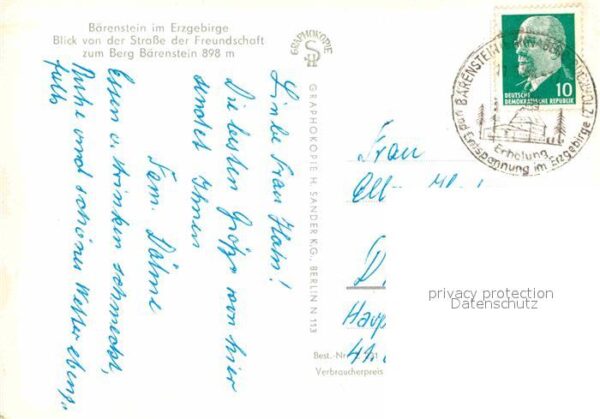 Bärenstein im Erzgebirge
Blick von der Straße der Freundschaft
zum Berg Bärenstein 898 m
GRAPHOKOPIE
GRAPHOKOPIE H. SANDER K.G., BERLIN N 113
Liebe Frau Hahn!
Die besten Grüße von hier
sendet Ihnen
Fam. Dähne
Essen u. trinken schmeckt,
Ruhe und schönes Wetter eben-
falls
DEUTSCHE
DEMOKRATISCHE REPUBLIK
10
BÄRENSTEIN
Erholung
und Entspannung im Erzgebirge
Frau
privacy protection
Datenschutz
Best.-Nr.
Verbraucherpreis